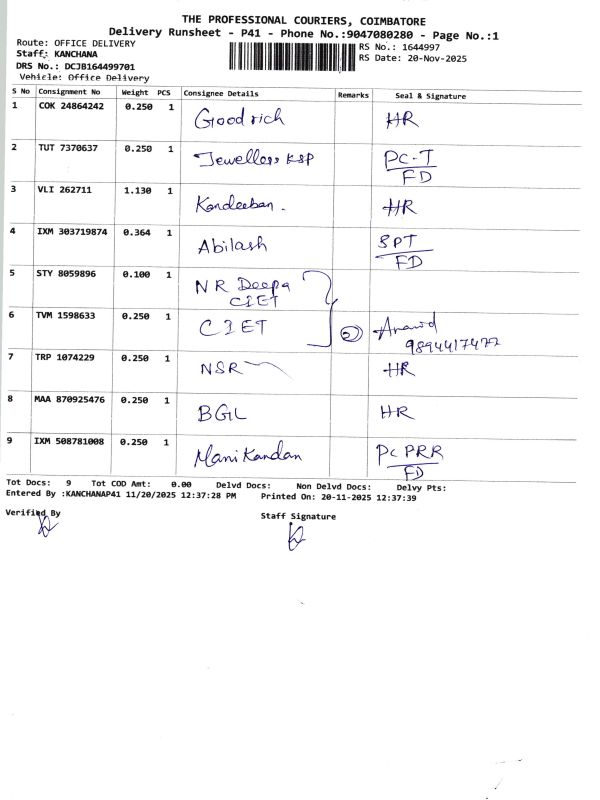 THE PROFESSIONAL COURIERS, COIMBATORE
Delivery Runsheet - P41 - Phone No.:9047080280 - Page No.:1
Route: OFFICE DELIVERY
RS No.: 1644997
Staff: KANCHANA
RS Date: 20-Nov-2025
DRS No.: DCJB164499701
Vehicle: Office Delivery
S No Consignment No Weight PCS Consignee Details Remarks Seal & Signature
1 COK 24864242 0.250 1 Goodrich HR
2 TUT 7370637 0.250 1 Jewellers KSP PC-T
FD
3 VLI 262711 1.130 1 Kandeeban. HR
4 IXM 303719874 0.364 1 Abilash SPT
FD
5 STY 8059896 0.100 1 NR Deepa
CIET
6 TVM 1598633 0.250 1 CIET 2
9894417477
7 TRP 1074229 0.250 1 NSR HR
8 MAA 870925476 0.250 1 BGL HR
9 IXM 508781008 0.250 1 Manikandan PC PRR
FD
Tot Docs: 9 Tot COD Amt: 0.00 Delvd Docs: Non Delvd Docs: Delvy Pts:
Entered By :KANCHANAP41 11/20/2025 12:37:28 PM Printed On: 20-11-2025 12:37:39
Verified By
Staff Signature